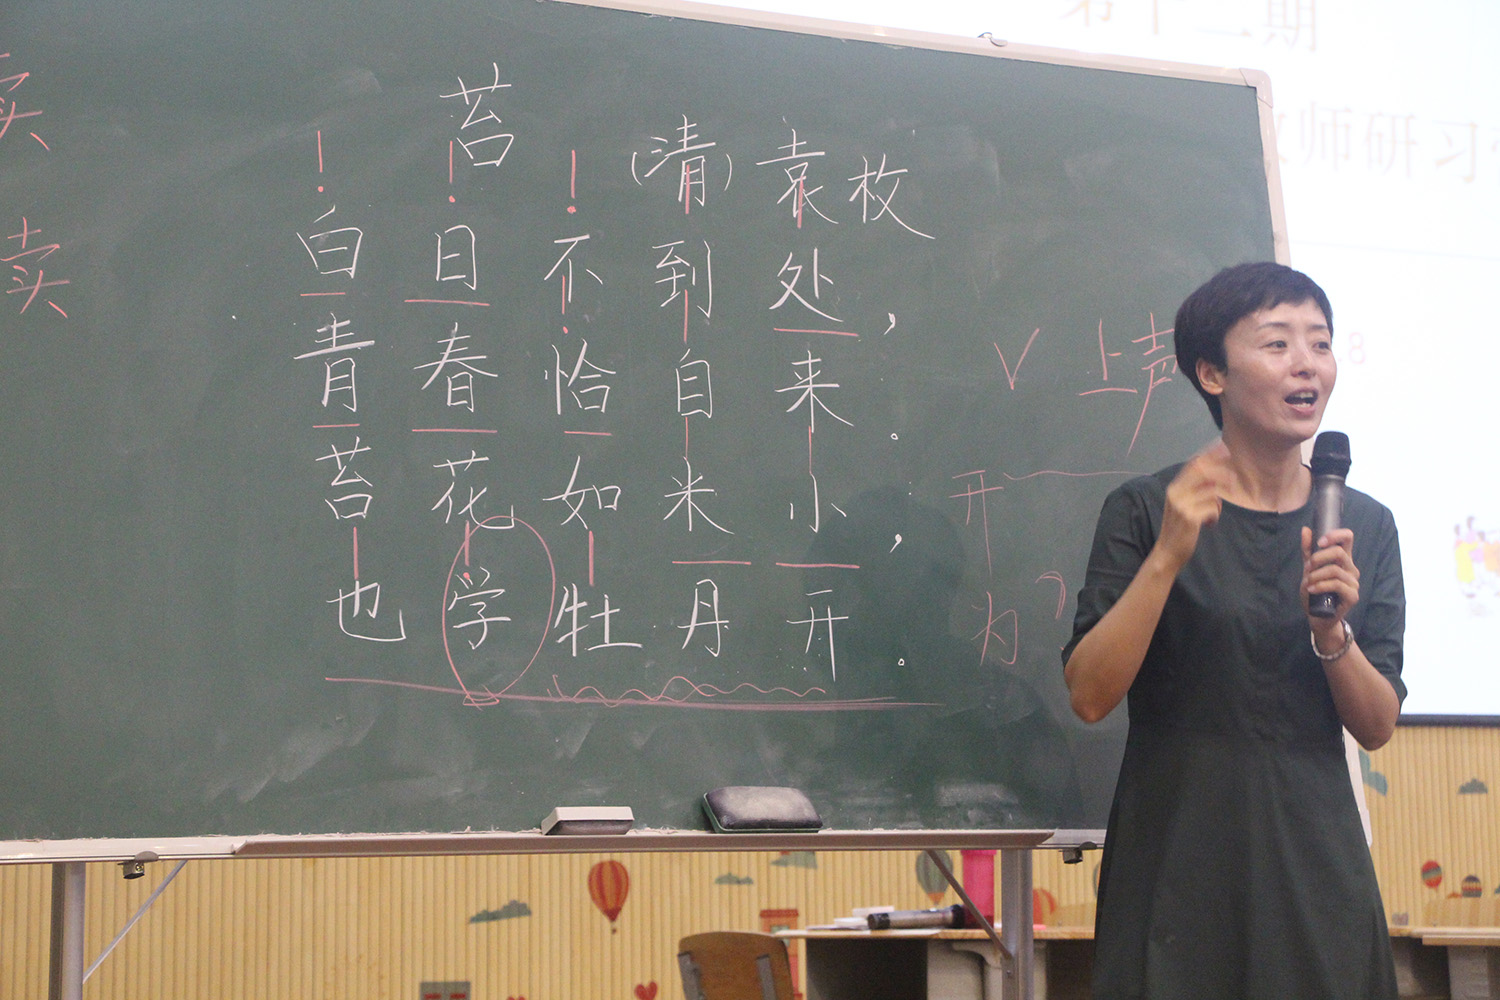 苔
(清)袁枚
白日不到处，
青春恰自来。
苔花如米小，
也学牡丹开。
卖
卖
∨ 上声
开
为
第十二期
教师研习
8